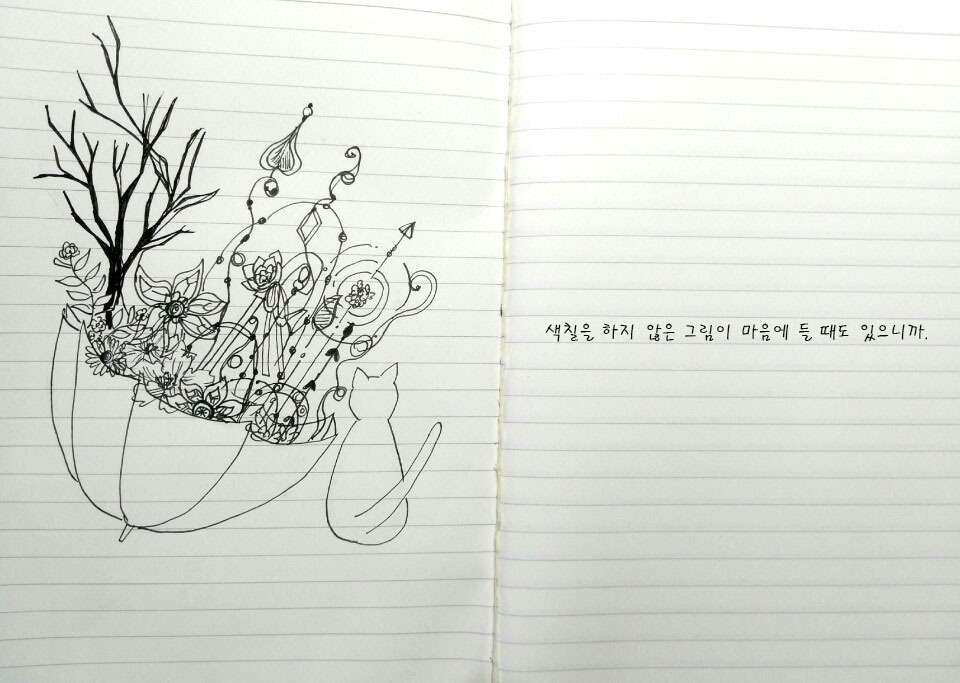 색칠을 하지 않은 그림이 마음에 들 때도 있으니까.